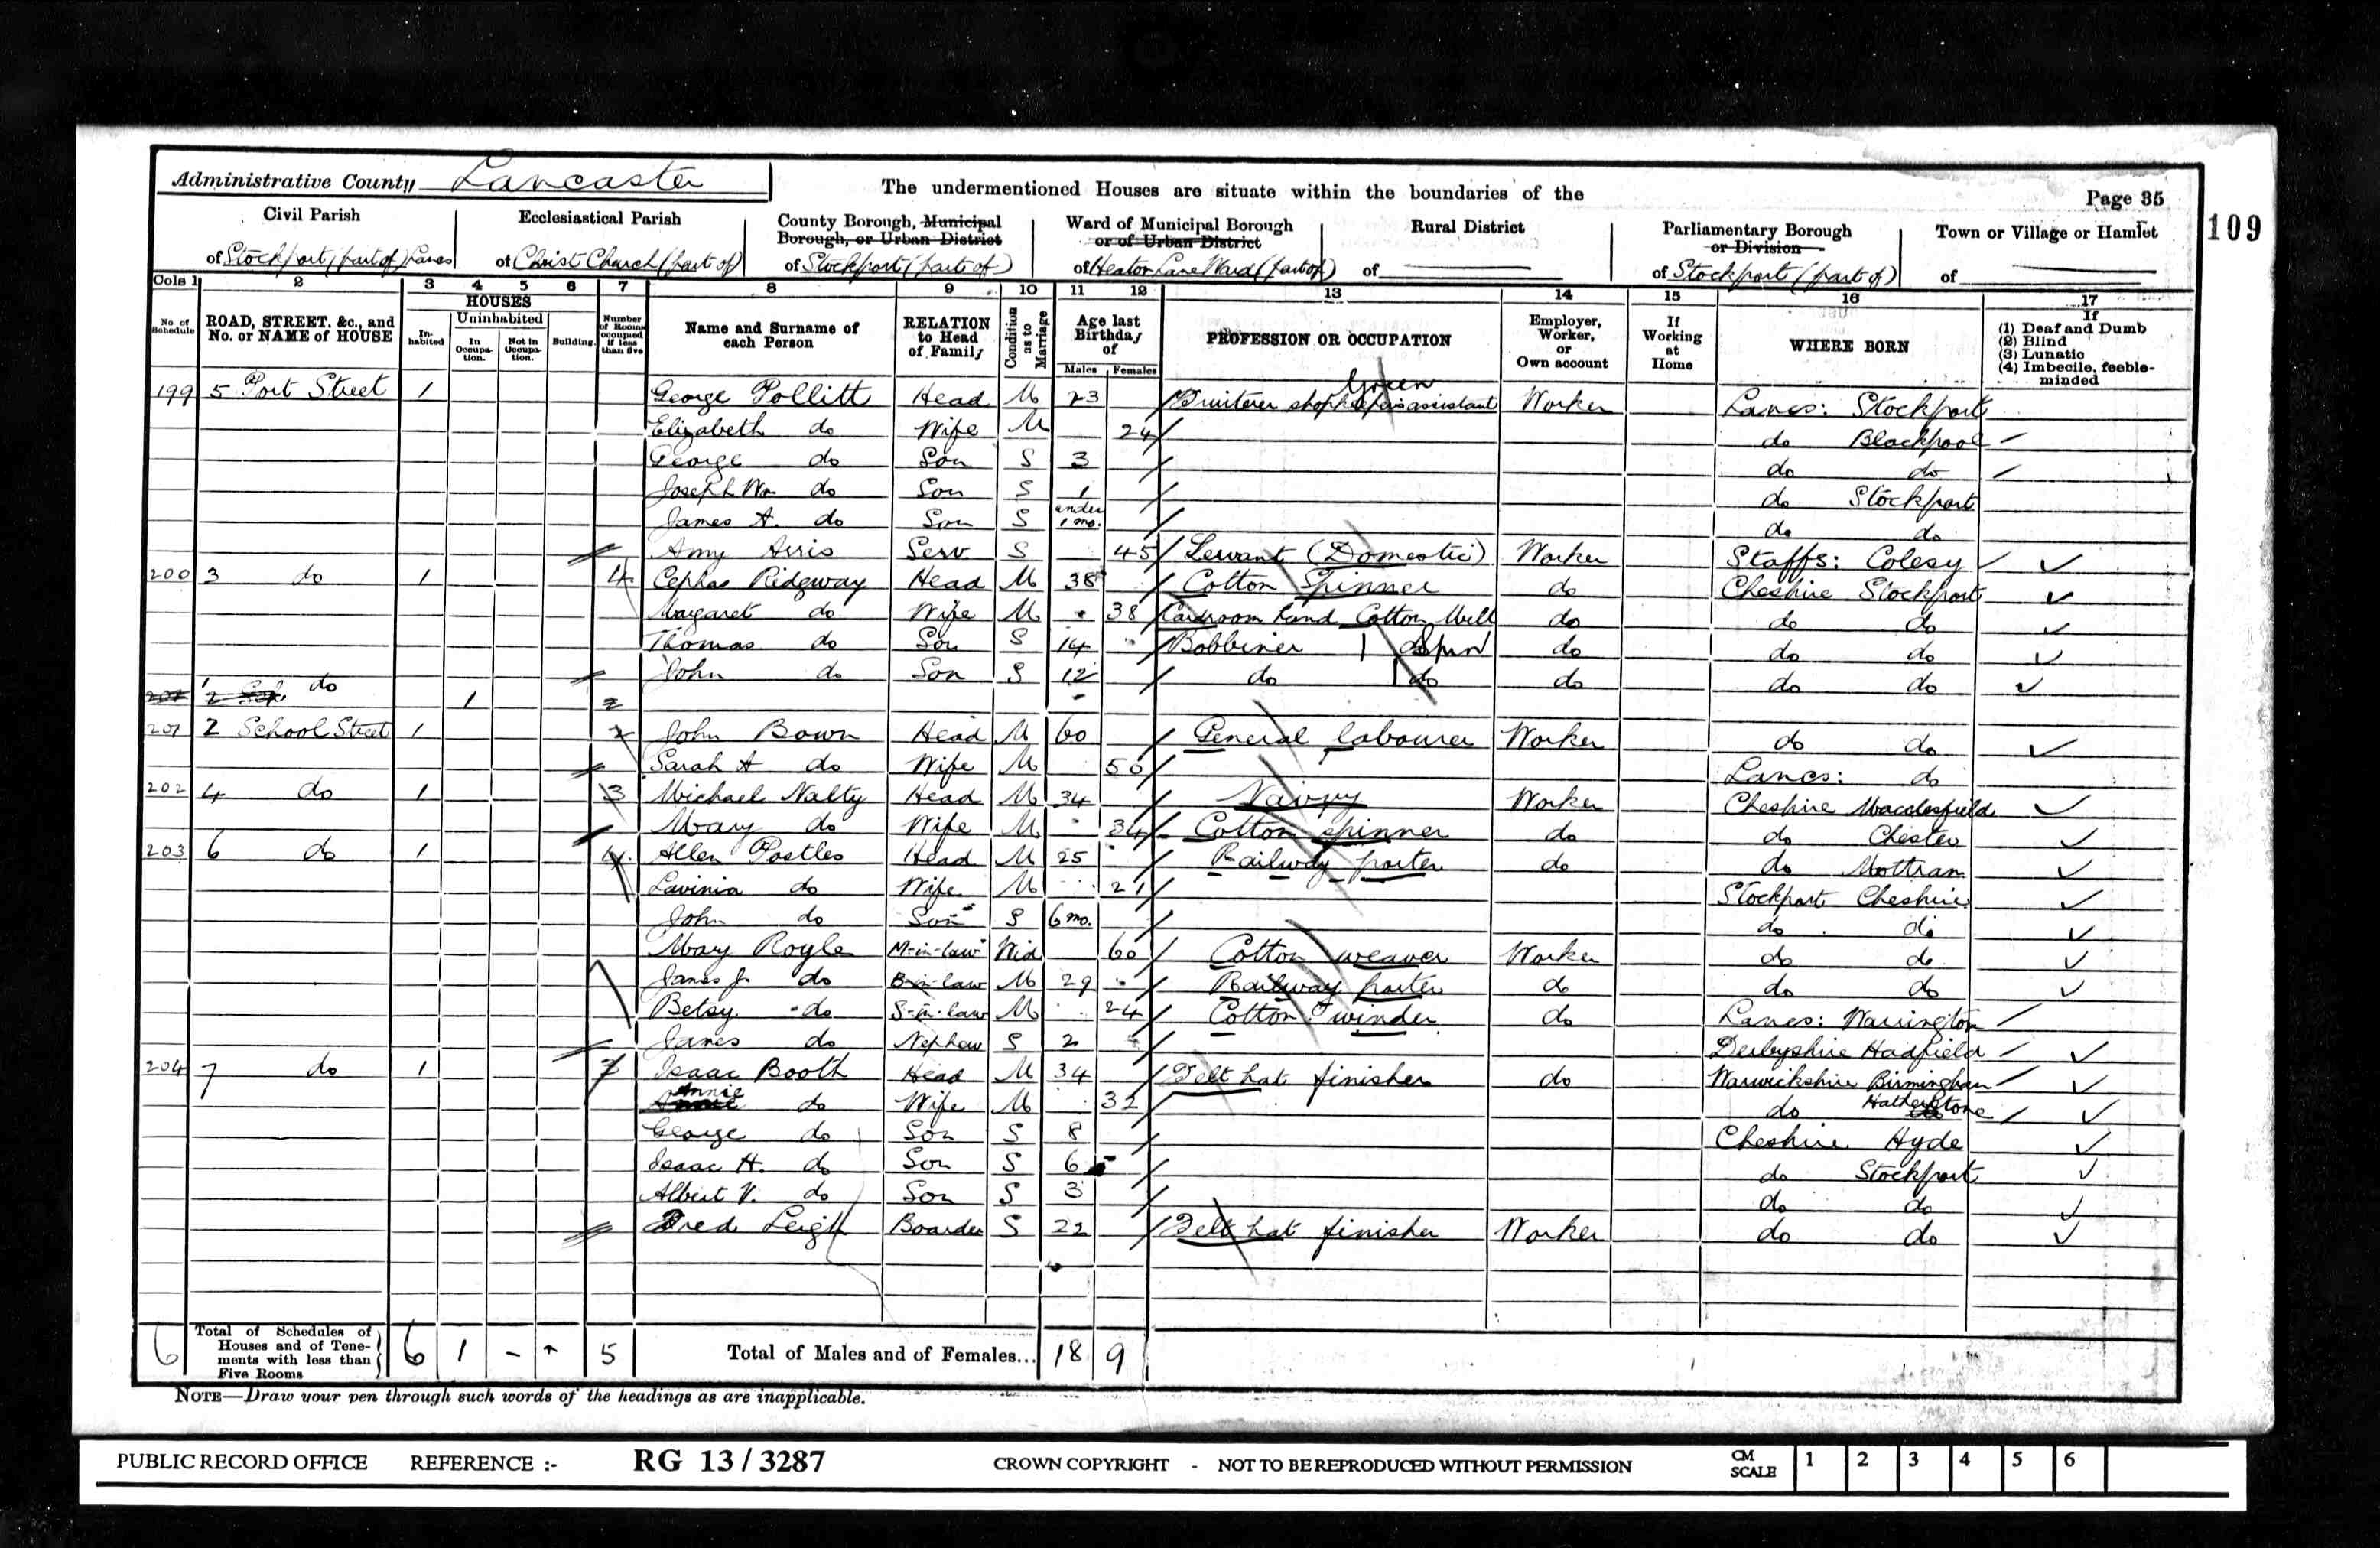 Administrative County Lancaster
The undermentioned Houses are situate within the boundaries of the
Page 35
109
Civil Parish
of Stockport (part of) Lancs
Ecclesiastical Parish
of Christ Church (part of)
County Borough, Municipal Borough, or Urban District
of Stockport (part of)
Ward of Municipal Borough or of Urban District
of Heaton Lane Ward (part of)
Rural District
of
Parliamentary Borough or Division
of Stockport (part of)
Town or Village or Hamlet
of
Cols 1 2 3 4 5 6 7 8 9 10 11 12 13 14 15 16 17
No of Schedule
ROAD, STREET, &c., and No. or NAME of HOUSE
HOUSES
In-habited
Uninhabited
In Occupa-tion.
Not in Occupa-tion.
Building.
Number of Rooms occupied if less than five
Name and Surname of each Person
RELATION to Head of Family
Condition as to Marriage
Age last Birthday of
Males Females
PROFESSION OR OCCUPATION
Employer, Worker, or Own account
If Working at Home
WHERE BORN
If
(1) Deaf and Dumb
(2) Blind
(3) Lunatic
(4) Imbecile, feeble-minded
199 5 Port Street 1 George Pollitt Head M 23 Fruiterer Green shopkeepers assistant Worker Lancs: Stockport
Elizabeth do Wife M 24 do Blackpool
George do Son S 3 do do
Joseph Wm do Son S 1 do Stockport
James A. do Son S under 1 mo. do do
Amy Serv S 45 Servant (Domestic) Worker Staffs:
200 3 do 1 4 Cephas Ridgway Head M 38 Cotton Spinner do Cheshire Stockport
Margaret do Wife M 38 Cardroom hand Cotton Mill do do do
Thomas do Son S 14 Bobbiner do do do
John do Son S 12 do do do do do
1 do 1 2
201 2 School Street 1 2 John Bown Head M 60 General labourer Worker do do
Sarah A do Wife M 50 Lancs: do
202 4 do 1 3 Michael Nalty Head M 34 Navvy Worker Cheshire Macclesfield
Mary do Wife M 34 Cotton spinner do do Chester
203 6 do 1 4 Allen Postles Head M 25 Railway porter do do Mottram
Lavinia do Wife M 21 Stockport Cheshire
John do Son S 6 mo. do do
Mary Royle M-in-law Wid 60 Cotton weaver Worker do do
James J. do B-in-law M 29 Railway porter do do do
Betsy do S-in-law M 24 Cotton winder do Lancs: Warrington
James do Nephew S 2 Derbyshire Hadfield
204 7 do 1 Isaac Booth Head M 34 Felt hat finisher do Warwickshire Birmingham
Annie do Wife M 32 do
George do Son S 8 Cheshire Hyde
Isaac H. do Son S 6 do Stockport
Albert V. do Son S 3 do do
Fred Leigh Boarder S 22 Felt hat finisher Worker do do
6 Total of Schedules of Houses and of Tenements with less than Five Rooms 6 1 - - 5 Total of Males and of Females... 18 9
NOTE—Draw your pen through such words of the headings as are inapplicable.
PUBLIC RECORD OFFICE REFERENCE :- RG 13/3287 CROWN COPYRIGHT - NOT TO BE REPRODUCED WITHOUT PERMISSION CM SCALE 1 2 3 4 5 6